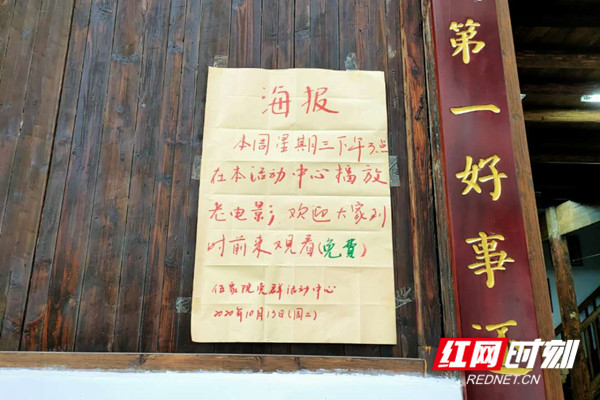 海报
本周星期三下午3点
在本活动中心播放
老电影; 欢迎大家到
时前来观看(免費)
伍家院党群活动中心
2020年10月13日(周二)
第一好事
红网时刻
REDNET.CN